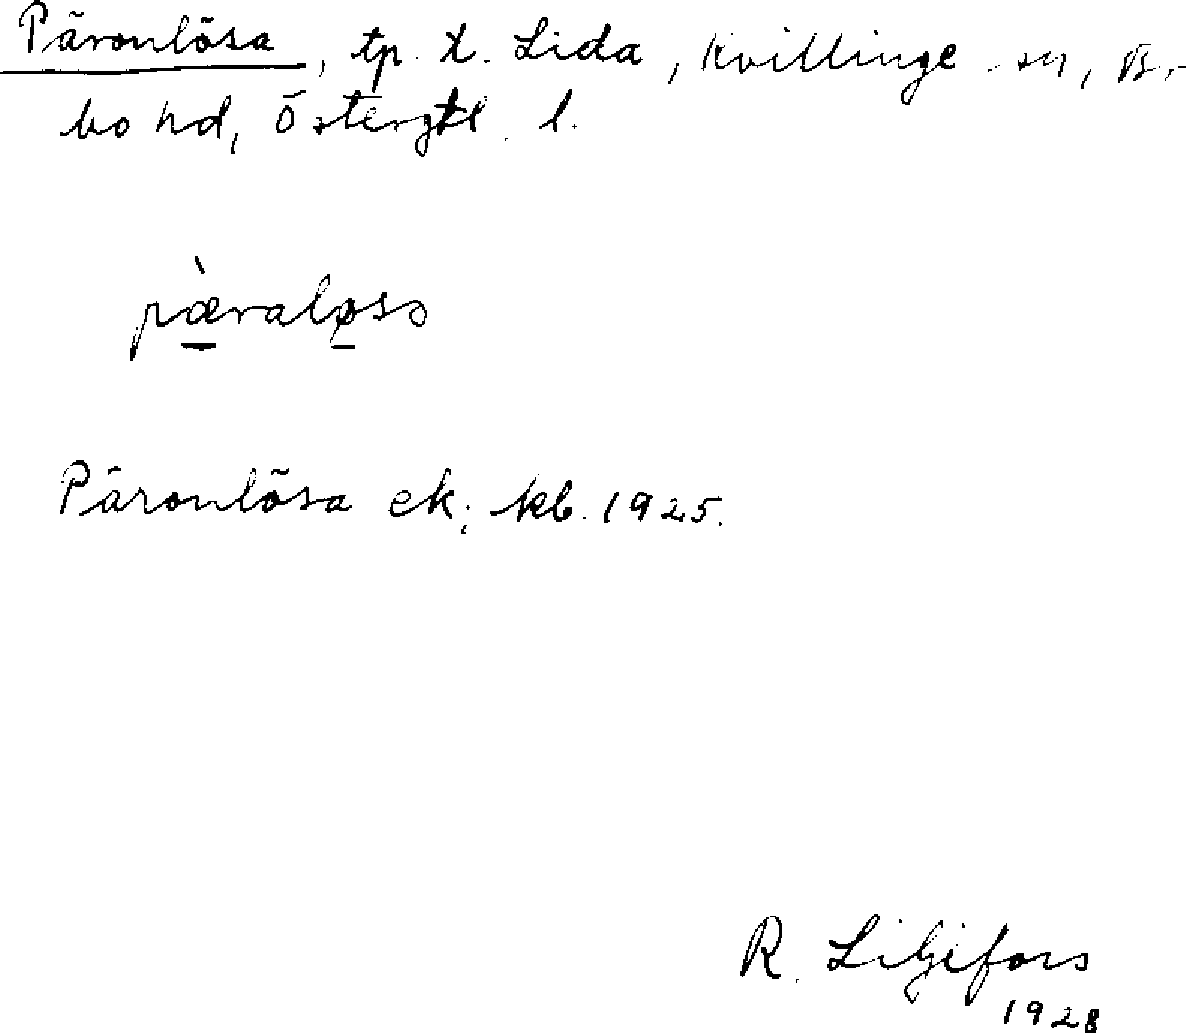 Päronlösa, tp. t. Lida, Kvillinge sn, B.-
bo hd, Östergtl. l.
pæ̀raløsa
Päronlösa ek; kb. 1925.
R. Liljefors
1928